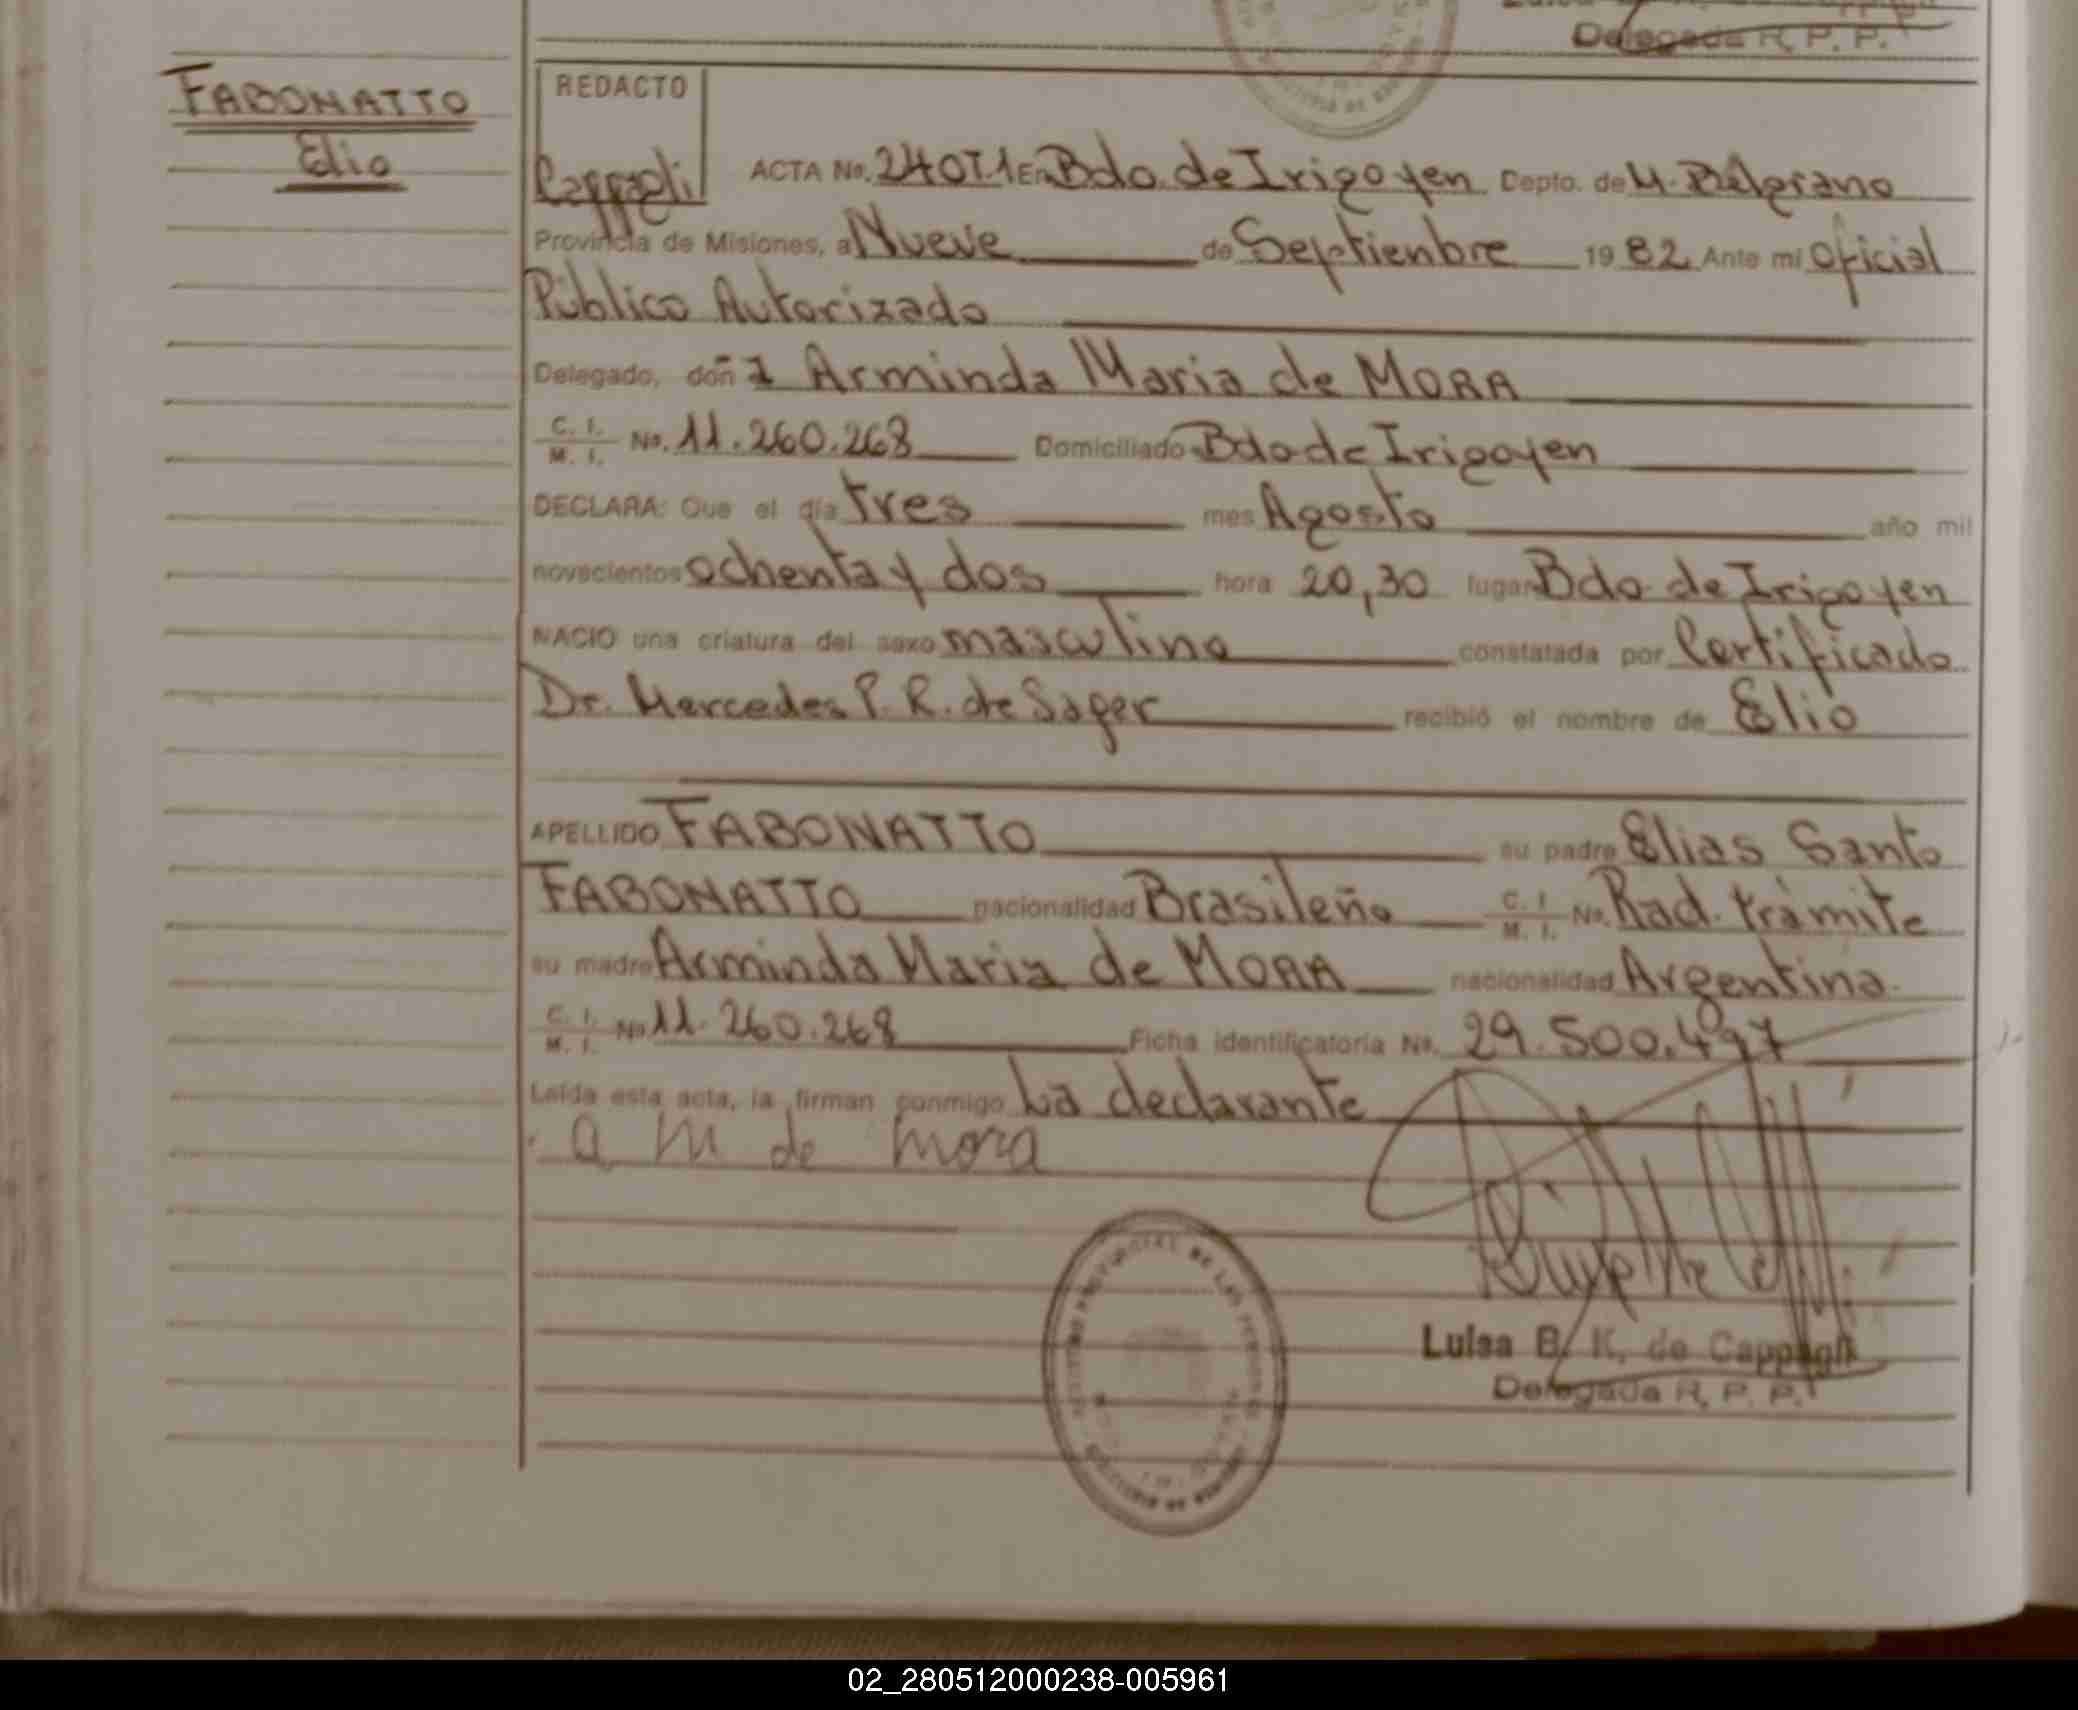 Delegada R. P. P.
FABONATTO
Elio
REDACTO
Cappagli
ACTA No. 240T1 En Bdo. de Irigoyen Depto. de M. Belgrano
Provincia de Misiones, a Nueve de Septienbre 1982 Ante mi oficial
Público Autorizado
Delegado, doña Arminda Maria de MORA
C. I. M. I. No. 11.260.268 Domiciliado Bdo de Irigoyen
DECLARA: Que el día tres mes Agosto año mil
novecientos ochenta y dos hora 20,30 lugar Bdo de Irigoyen
NACIO una criatura del sexo masculino constatada por Certificado
Dr. Mercedes P. R. de Sager recibió el nombre de Elio
APELLIDO FABONATTO su padre Elias Santo
FABONATTO nacionalidad Brasileño C. I. M. I. No. Rad. trámite
su madre Arminda Maria de MORA nacionalidad Argentina.
C. I. M. I. No. 11.260.268 Ficha identificatoria No. 29.500.497
Leída esta acta, la firman conmigo La declarante
a m de mora
Luisa B. K. de Cappagli
Delegada R. P. P.
02_280512000238-005961